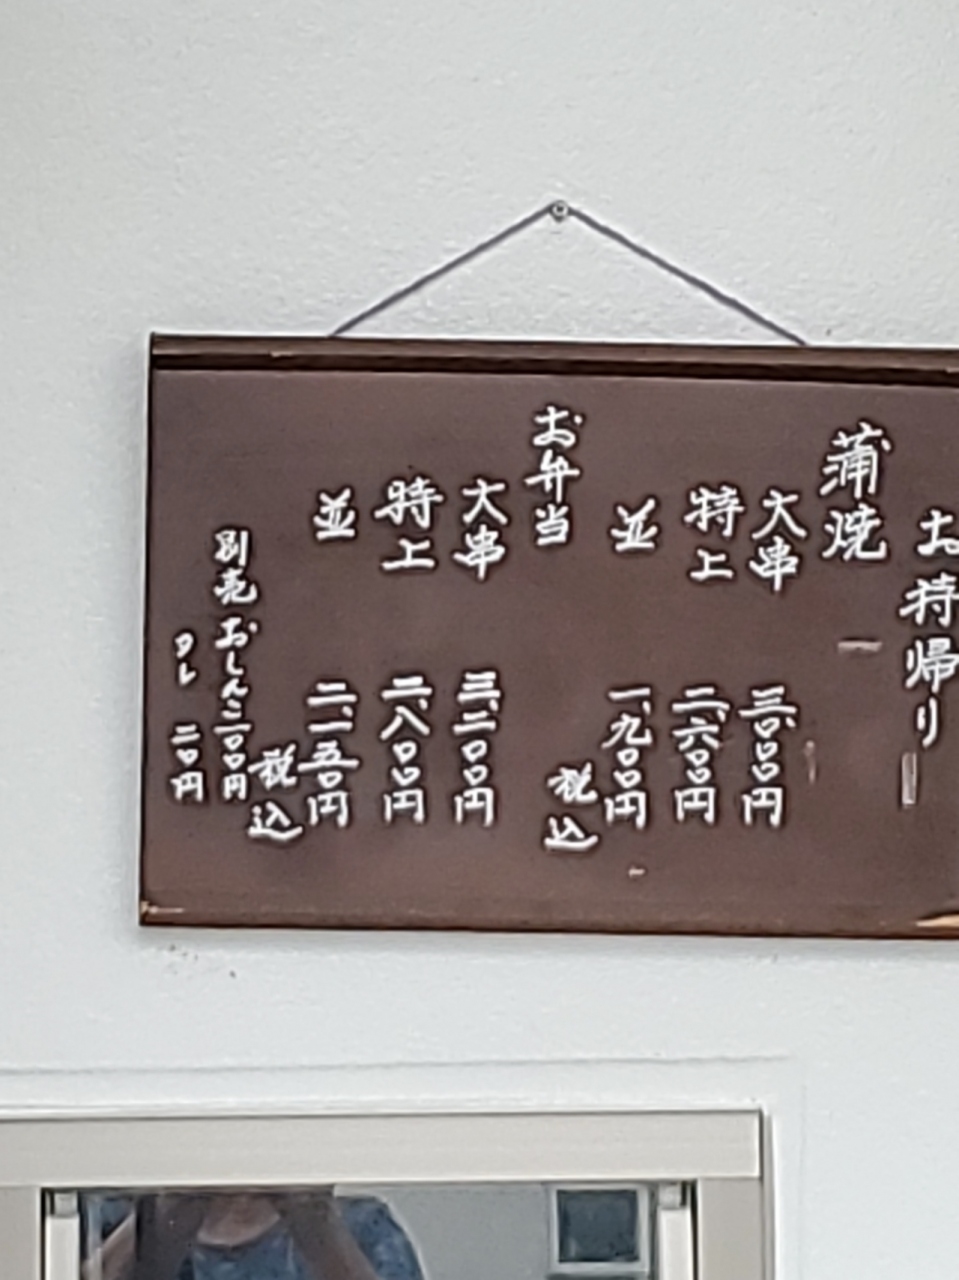 お持帰り
蒲焼
大串 三、〇〇〇円
特上 二、六〇〇円
並 一、九〇〇円
税込
お弁当
大串 三、二〇〇円
特上 二、八〇〇円
並 二、一五〇円
税込
別売 おしんこ 二〇〇円
タレ 二〇円